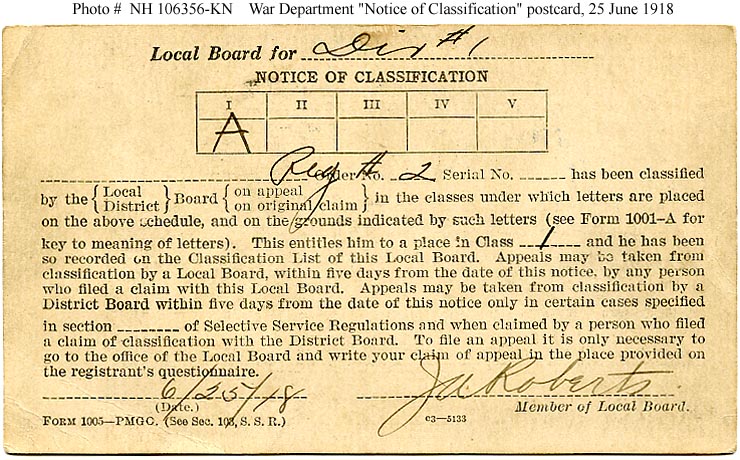 Photo # NH 106356-KN War Department "Notice of Classification" postcard, 25 June 1918
Local Board for Div #1
NOTICE OF CLASSIFICATION
I II III IV V
A
Reg # 2 Order No. Serial No. has been classified
by the { Local District } Board { on appeal on original claim } in the classes under which letters are placed
on the above schedule, and on the grounds indicated by such letters (see Form 1001-A for
key to meaning of letters). This entitles him to a place in Class 1 and he has been
so recorded on the Classification List of this Local Board. Appeals may be taken from
classification by a Local Board, within five days from the date of this notice, by any person
who filed a claim with this Local Board. Appeals may be taken from classification by a
District Board within five days from the date of this notice only in certain cases specified
in section of Selective Service Regulations and when claimed by a person who filed
a claim of classification with the District Board. To file an appeal it is only necessary to
go to the office of the Local Board and write your claim of appeal in the place provided on
the registrant's questionnaire.
6/25/18 Roberts
(Date.) Member of Local Board.
Form 1005—PMGO. (See Sec. 103, S. S. R.) c3—5133